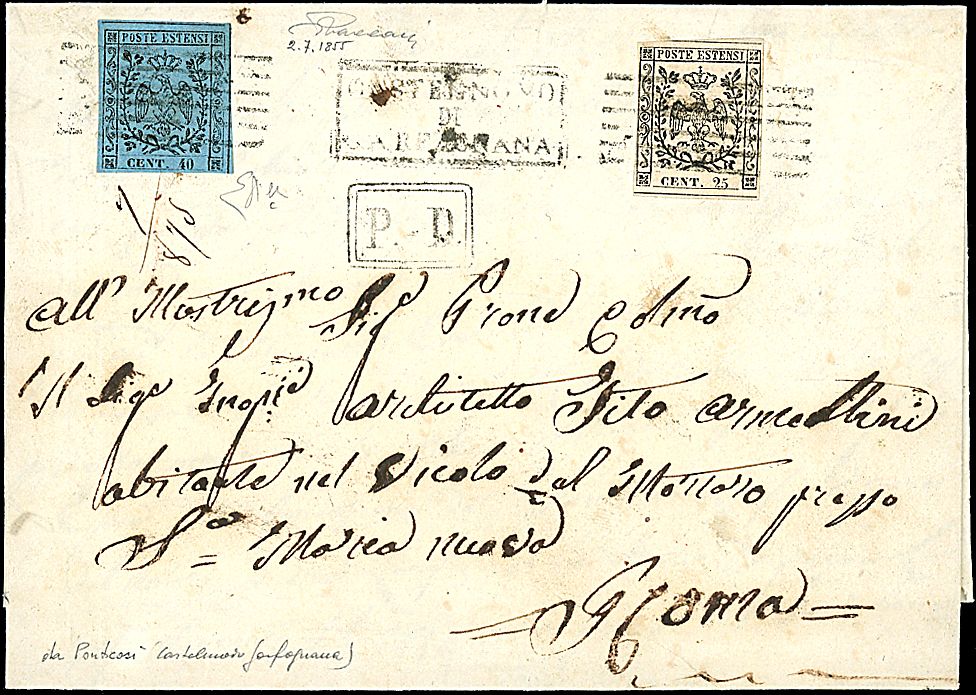 POSTE ESTENSI
CENT. 40
2.7.1855
CASTELNOVO
DI
GARFAGNANA
POSTE ESTENSI
CENT. 25
P.D.
8/15
all' Illustrissimo Sig Prone Colmo
Il Sige architetto Tito Armellini
abitante nel Vicolo del presso
Sa Maria nuova
Roma
da Ponticosi Castelnuovo Garfagnana)